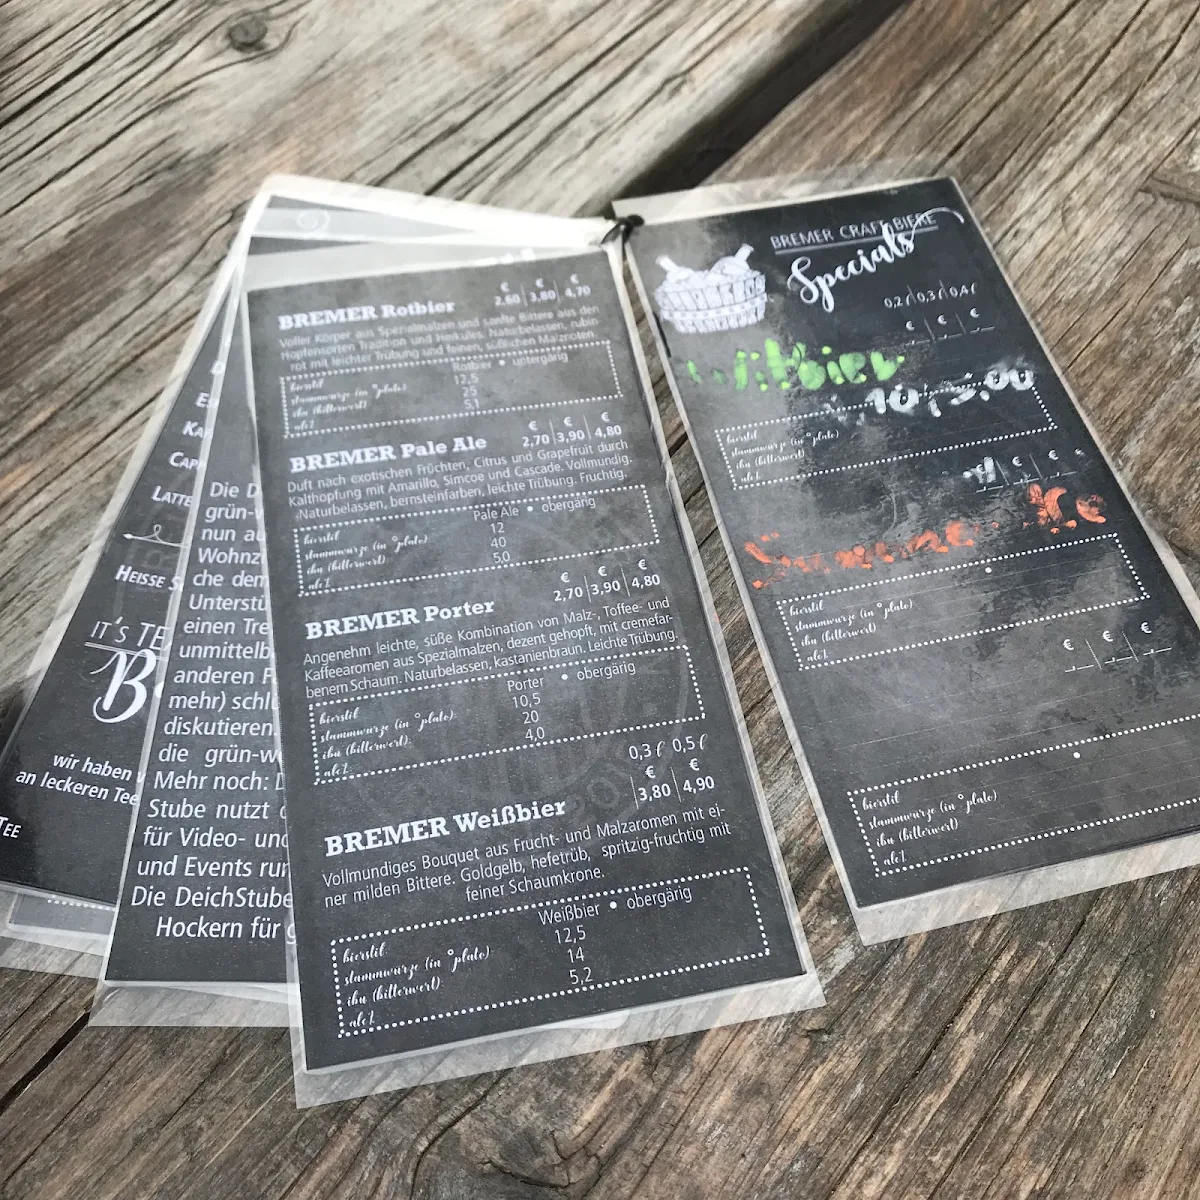 D
E
KA
CAPP
LATTE
HEISSE S
IT'S TE
B
wir haben v
an leckeren Tee
TEE
Die D
grün-w
nun au
Wohnz
che dem
Unterstü
einen Tre
unmittelb
anderen F
mehr) schlu
diskutieren.
die grün-we
Mehr noch: D
Stube nutzt d
für Video- und
und Events run
Die DeichStube
Hockern für g
€ € €
BREMER Rotbier 2,60 3,80 4,70
Voller Körper aus Spezialmalzen und sanfte Bittere aus den
Hopfensorten Tradition und Herkules. Naturbelassen, rubin-
rot mit leichter Trübung und feinen, süßlichen Malznoten.
bierstil Rotbier • obergärig
stammwürze (in °plato): 12,5
ibu (bitterwert): 25
alc% 5,1
€ € €
BREMER Pale Ale 2,70 3,90 4,80
Duft nach exotischen Früchten, Citrus und Grapefruit durch
Kalthopfung mit Amarillo, Simcoe und Cascade. Vollmundig.
Naturbelassen, bernsteinfarben, leichte Trübung. Fruchtig.
bierstil Pale Ale • obergärig
stammwürze (in °plato): 12
ibu (bitterwert): 40
alc% 5,0
€ € €
BREMER Porter 2,70 3,90 4,80
Angenehm leichte, süße Kombination von Malz-, Toffee- und
Kaffeearomen aus Spezialmalzen, dezent gehopft, mit cremefar-
benem Schaum. Naturbelassen, kastanienbraun. Leichte Trübung.
bierstil Porter • obergärig
stammwürze (in °plato): 10,5
ibu (bitterwert): 20
alc% 4,0
0,3 l 0,5 l
€ €
BREMER Weißbier 3,80 4,90
Vollmundiges Bouquet aus Frucht- und Malzaromen mit ei-
ner milden Bittere. Goldgelb, hefetrüb, spritzig-fruchtig mit
feiner Schaumkrone.
bierstil Weißbier • obergärig
stammwürze (in °plato): 12,5
ibu (bitterwert): 14
alc% 5,2
BREMER CRAFT BIERE
Specials
0,2 l 0,3 l 0,4 l
€ € €
Witbier
bierstil
stammwürze (in °plato)
ibu (bitterwert)
alc%
€ € €
bierstil
stammwürze (in °plato)
ibu (bitterwert)
alc%
€ € €
bierstil
stammwürze (in °plato)
ibu (bitterwert)
alc%